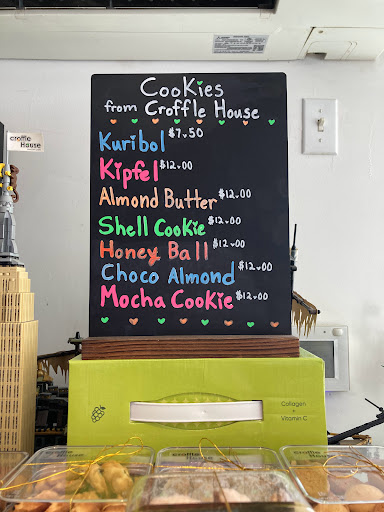 Cookies
from Croffle House
Kuribol $7.50
Kipfel $12.00
Almond Butter $12.00
Shell Cookie $12.00
Honey Ball $12.00
Choco Almond $12.00
Mocha Cookie $12.00
croffle
House
Collagen
+
Vitamin C
croffle
House